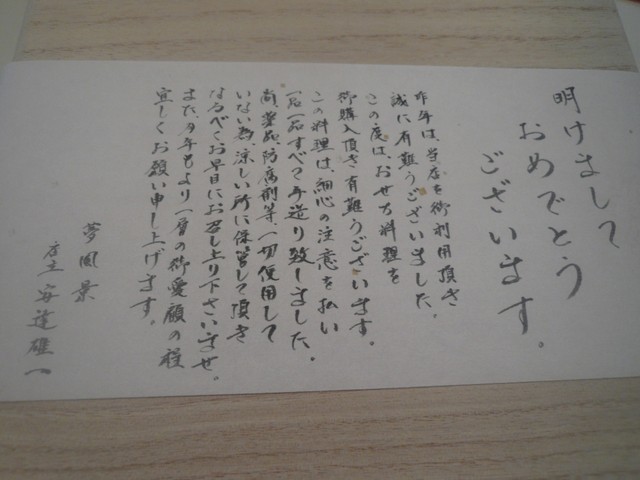 明けまして
おめでとう
ございます。
昨年は、当店を御利用頂き
誠に有難うございました。
この度は、おせち料理を
御購入頂き有難うございます。
この料理は、細心の注意を払い
一品一品すべて手造り致しました。
尚、薬品、防腐剤等一切使用して
いない為、涼しい所に保管して頂き
なるべくお早目にお召し上り下さいませ。
また、今年もより一層の御愛顧の程
宜しくお願い申し上げます。
夢風景
店主 安達雄一